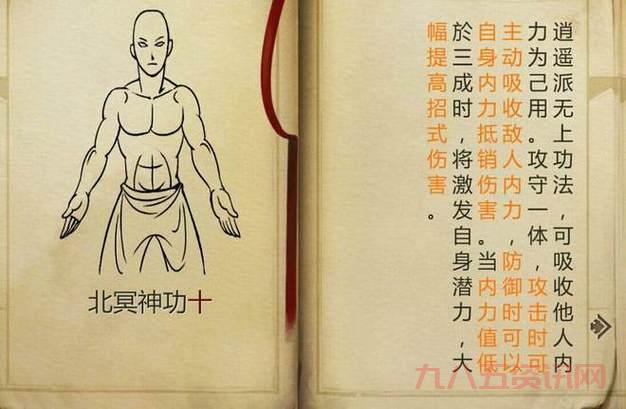 北冥神功十
逍遥派无上功法，可吸收他人内
力为己用。攻守一体，攻击时可
主动吸收敌人内力，防御时可以
自身内力抵销伤害。当内力值低
於三成时，将激发自身潜力，大
幅提高招式伤害。
九八五资讯网